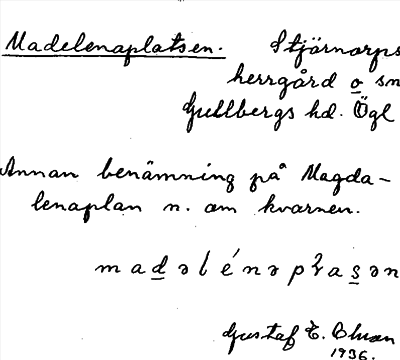 Madelenaplatsen. Stjärnorps
herrgård o sn
Gullbergs hd. Ögl
Annan benämning på Magda-
lenaplan n. om kvarnen.
Gustaf T. Ohlson
1936.